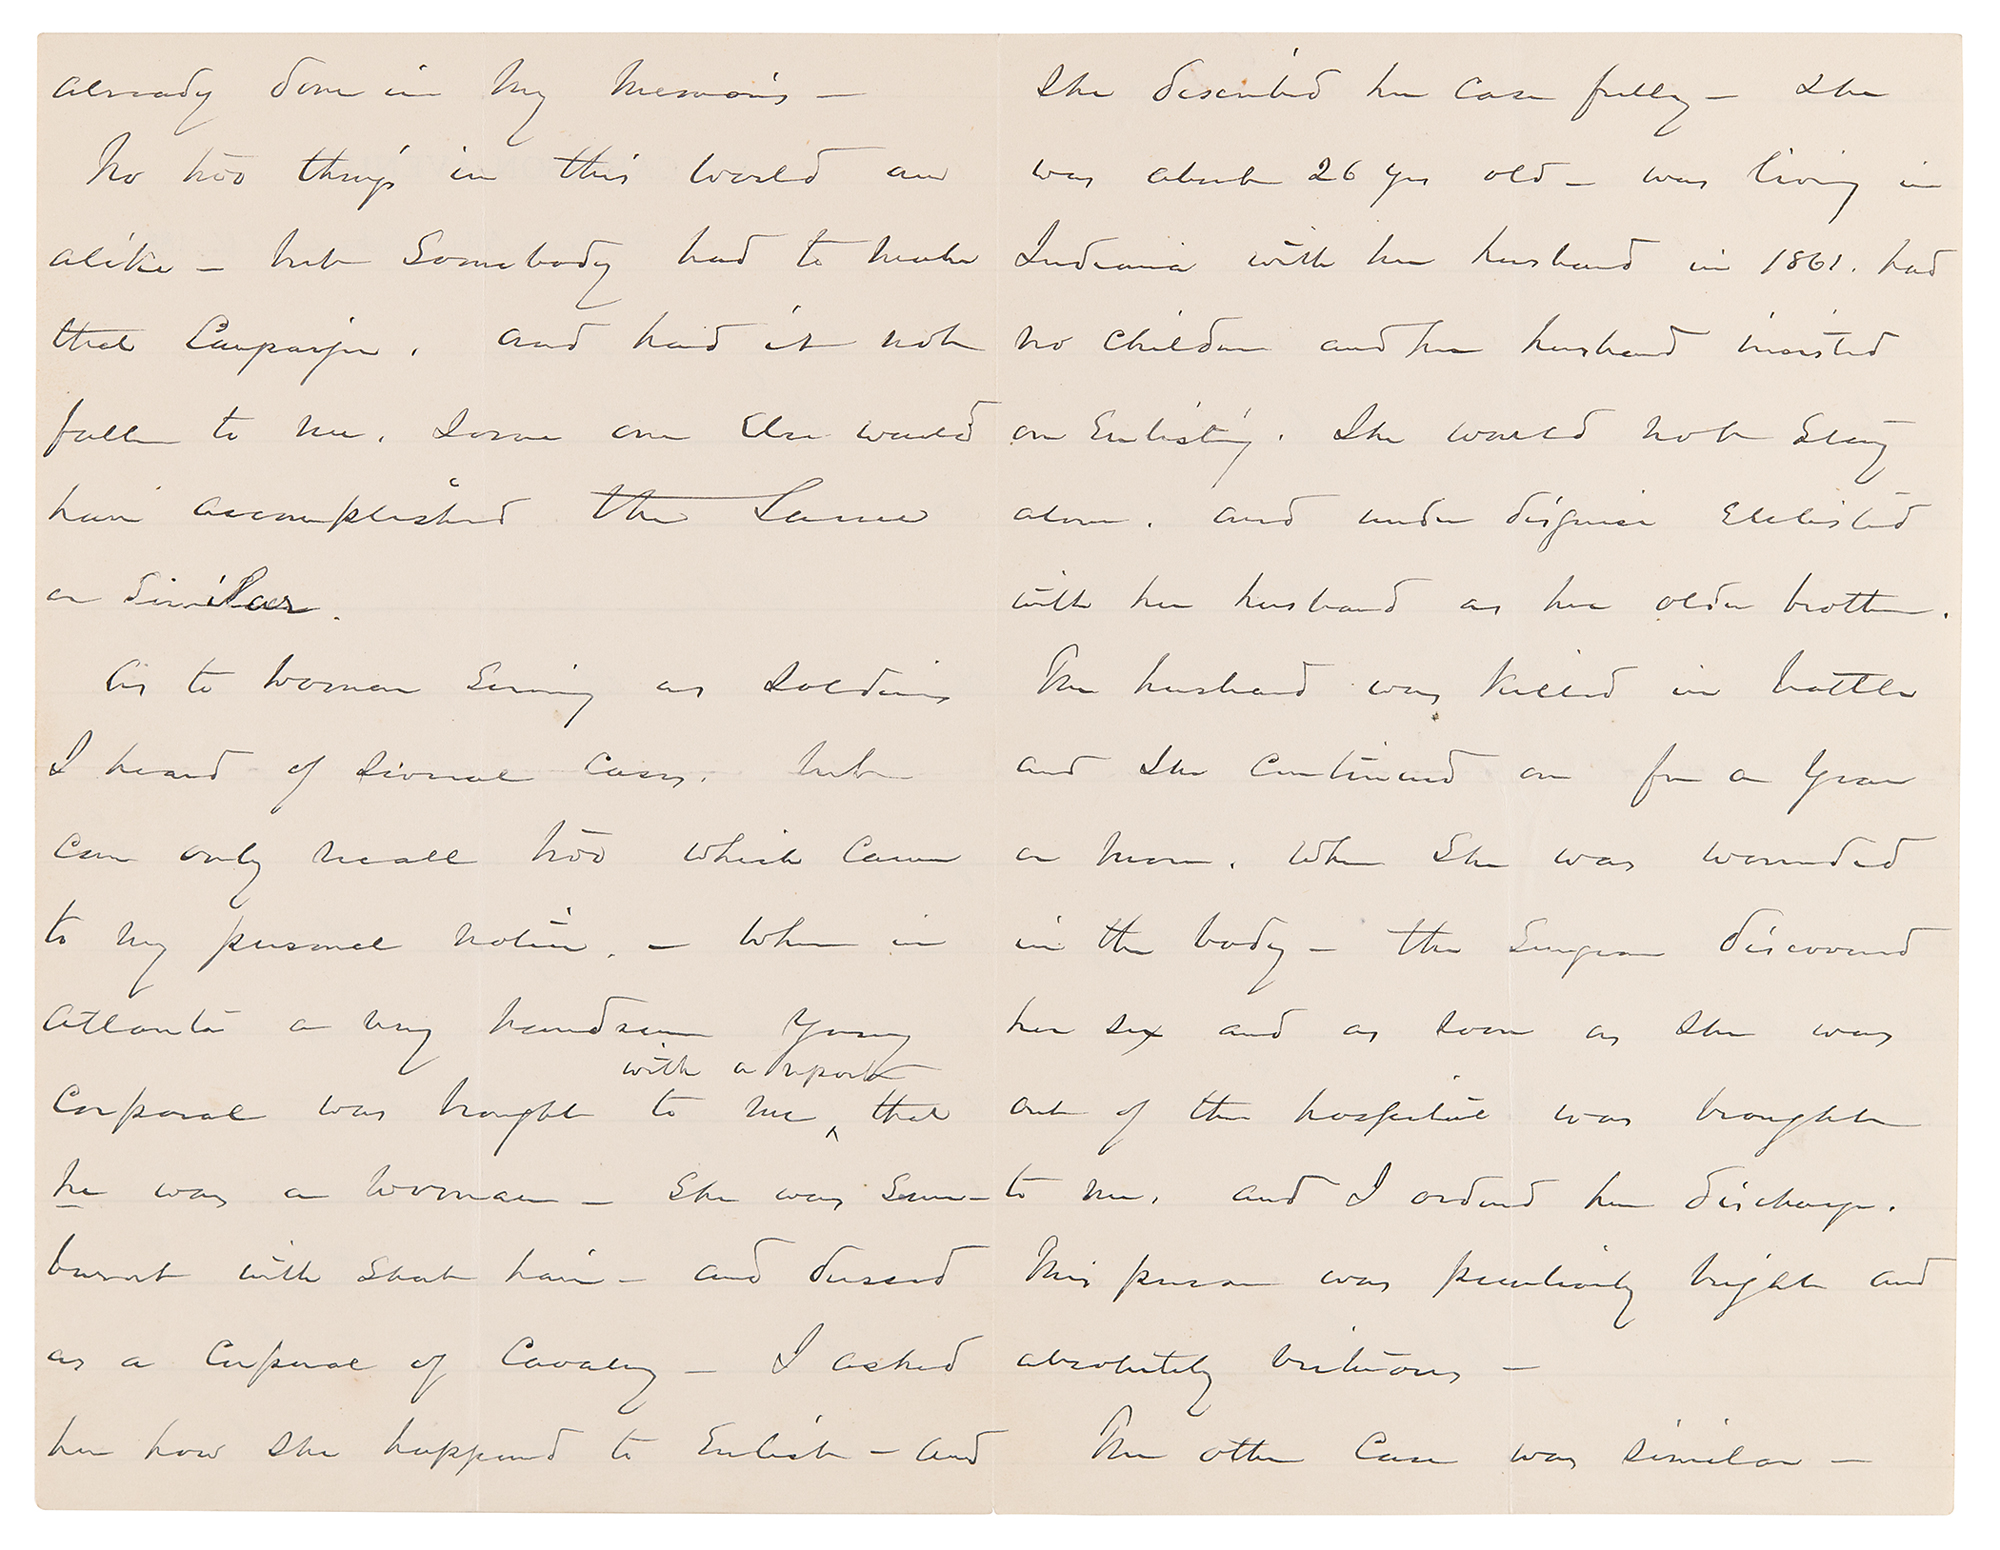 already done in my Memoirs —
No two things in this World are
alike — but Somebody had to make
that Campaign. and had it not
fallen to me, Some one Else would
have accomplished the Same
or Similar.
As to Women Serving as Soldiers
I heard of several cases. but
can only recall two which came
to my personal notice. — When in
Atlanta a very handsome young
with a report
Corporal was brought to me ^ that
he was a Woman — She was Sun-
burnt with Short hair — and dressed
as a Corporal of Cavalry — I asked
her how she happened to Enlist — and
She described her case fully — She
was about 26 yrs old — was living in
Indiana with her husband in 1861. had
no children and her husband insisted
on Enlisting. She would not Stay
alone. and under disguise Enlisted
with her husband as her older brother.
The husband was Killed in battle
and she continued on for a Year
or more. When She was wounded
in the body — the Surgeon discovered
her sex and as soon as she was
out of the hospital was brought
to me. and I ordered her discharge.
This person was peculiarly bright and
absolutely virtuous —
The other Case was similar —